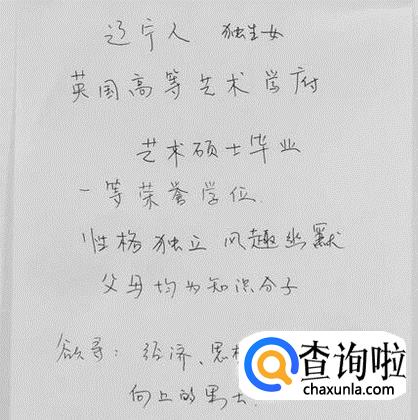 辽宁人 独生女
英国高等艺术学府
艺术硕士毕业
一等荣誉学位
性格独立 风趣幽默
父母均为知识分子
欲寻：经济、思
向上的男士
查询啦
chaxunla.com